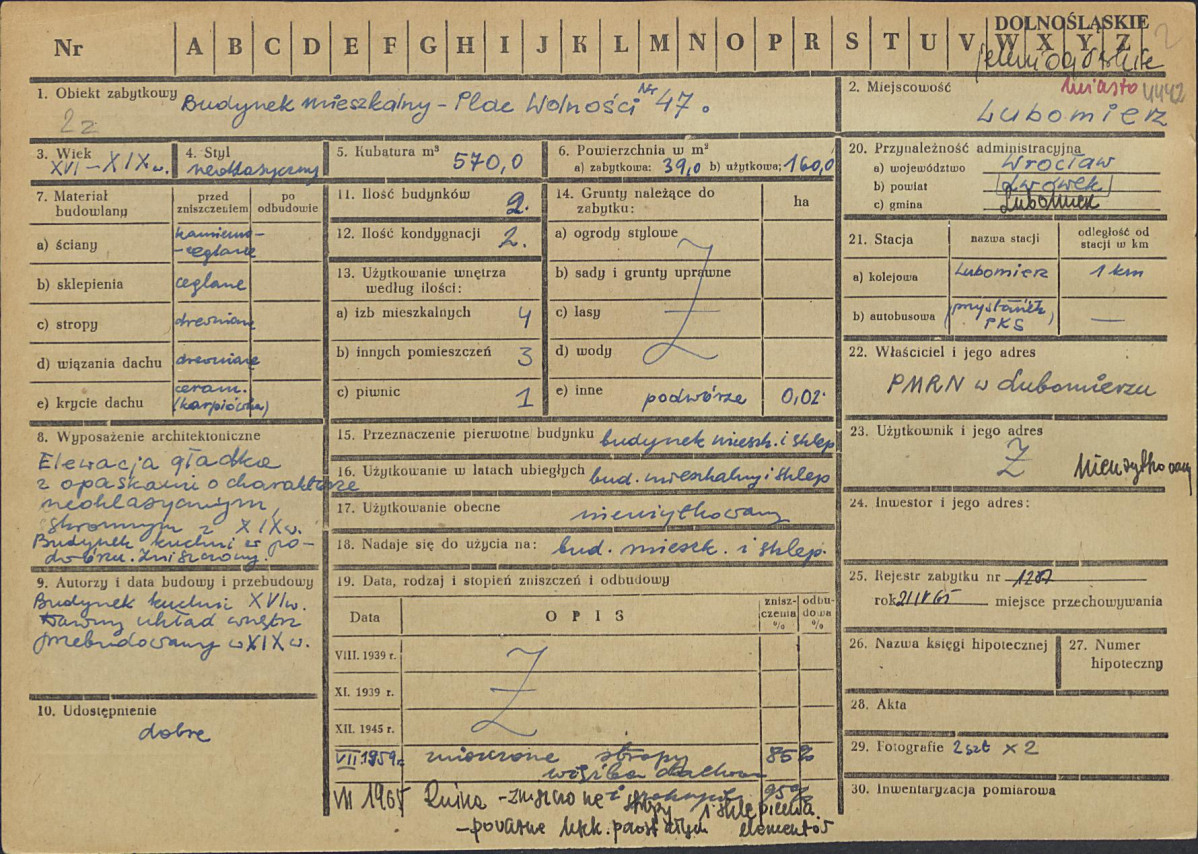 DOLNOŚLĄSKIE
Nr A B C D E F G H I J K L M N O P R S T U V W X Y Z 2
jeleniogórskie
1. Obiekt zabytkowy Budynek mieszkalny - Plac Wolności Nr 47.
22
2. Miejscowość miasto 4442
Lubomierz
3. Wiek XVI-XIXw.
4. Styl neoklasyczny
5. Kubatura m³ 570,0
6. Powierzchnia w m²
a) zabytkowa: 39,0 b) użytkowa: 160,0
7. Materiał budowlany
przed zniszczeniem
po odbudowie
a) ściany kamienno-
-ceglane
b) sklepienia ceglane
c) stropy drewniane
d) wiązania dachu drewniane
e) krycie dachu ceram.
(karpiówka)
8. Wyposażenie architektoniczne
Elewacja gładka
z opaskami o charakterze
neoklasycznym,
skromnym z XIXw.
Budynek kuchni w po-
dwórzu. Zniszczony.
9. Autorzy i data budowy i przebudowy
Budynek kuchni XVIw.
Dawny układ wnętrz
przebudowany w XIX w.
10. Udostępnienie
dobre
11. Ilość budynków 2.
12. Ilość kondygnacji 2.
13. Użytkowanie wnętrza
według ilości:
a) izb mieszkalnych 4
b) innych pomieszczeń 3
c) piwnic 1
14. Grunty należące do
zabytku: ha
a) ogrody stylowe
b) sady i grunty uprawne
c) lasy
d) wody
e) inne podwórze 0,02
15. Przeznaczenie pierwotne budynku budynek mieszk. i sklep
16. Użytkowanie w latach ubiegłych bud. mieszkalny i sklep
17. Użytkowanie obecne nieużytkowany
18. Nadaje się do użycia na: bud. mieszk. i sklep.
19. Data, rodzaj i stopień zniszczeń i odbudowy
Data OPIS zniszczenia % odbudowa %
VIII. 1939 r.
XI. 1939 r.
XII. 1945 r.
VII 1959r. zniszczone stropy 85%
więźba dachowa
VII 1965 Ruina - zniszczone stropy i sklepienia 95%
- poważne elementów
20. Przynależność administracyjna
a) województwo Wrocław
b) powiat (Lwówek)
c) gmina Lubomierz
21. Stacja nazwa stacji odległość od stacji w km
a) kolejowa Lubomierz 1 km
b) autobusowa (przystanek PKS) —
22. Właściciel i jego adres
PMRN w Lubomierzu
23. Użytkownik i jego adres
nieużytkowany
24. Inwestor i jego adres:
25. Rejestr zabytku nr 1287
rok 21 IV 65 miejsce przechowywania
26. Nazwa księgi hipotecznej
27. Numer hipoteczny
28. Akta
29. Fotografie 2 szt x 2
30. Inwentaryzacja pomiarowa